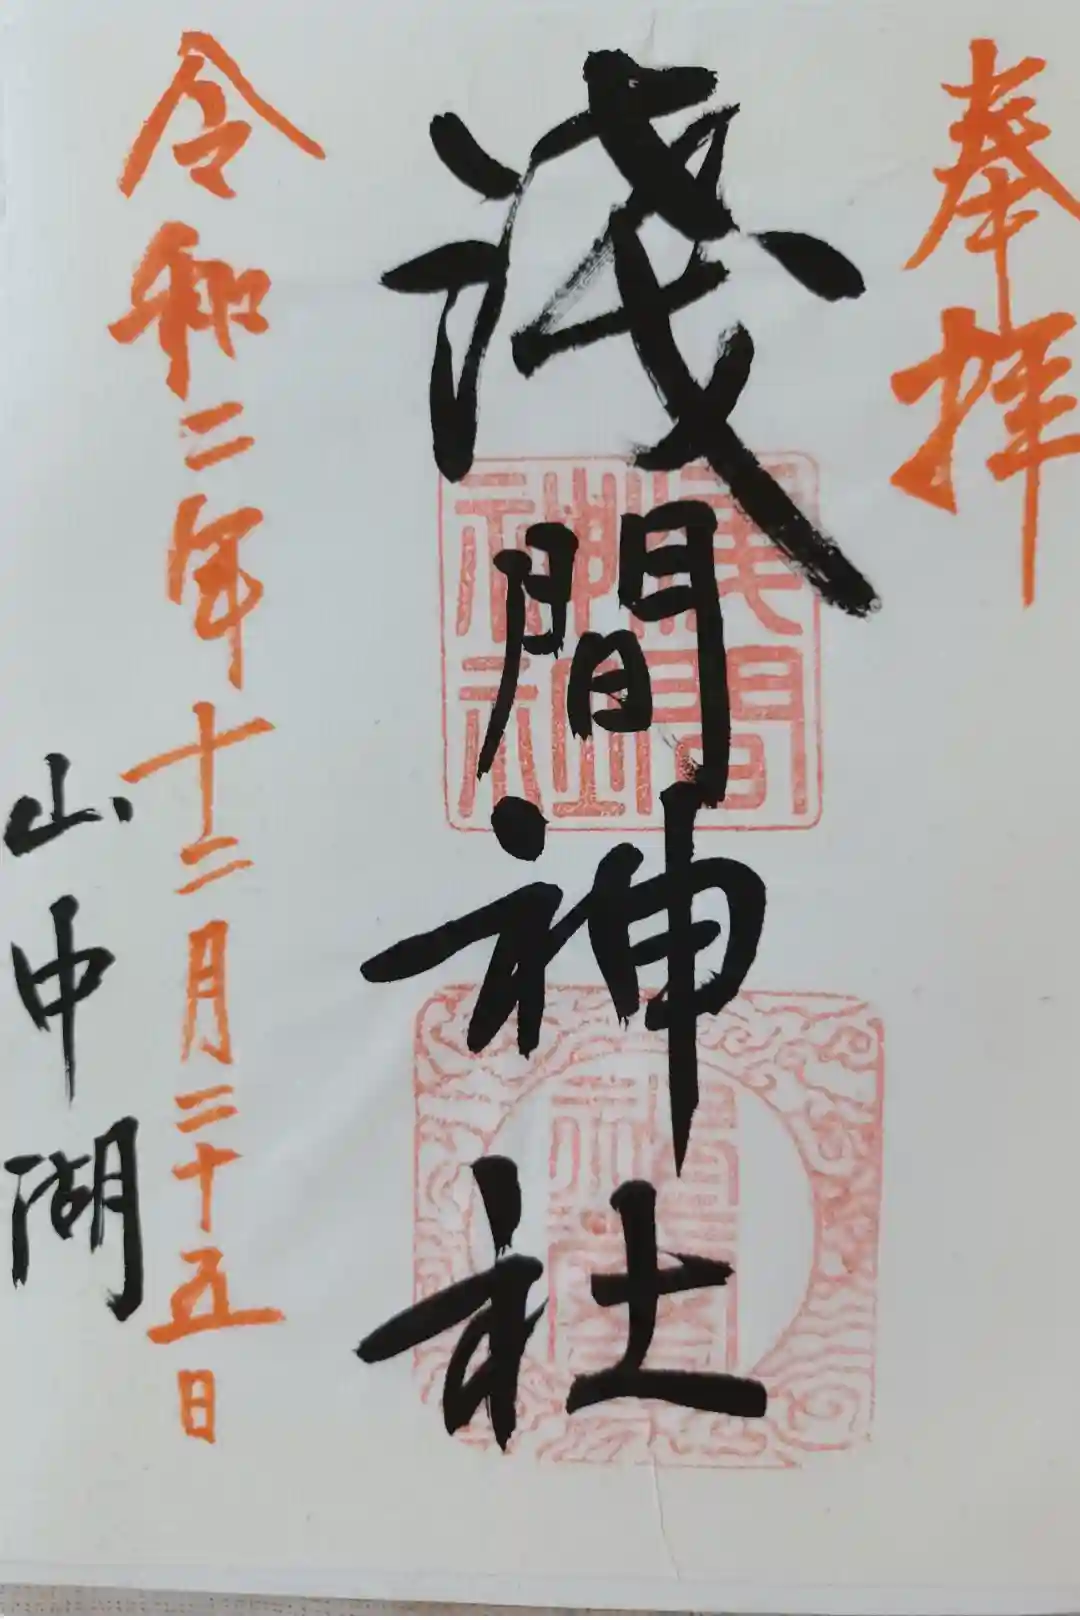 奉拝
浅間神社
浅間神社
令和二年十二月二十五日
山中湖